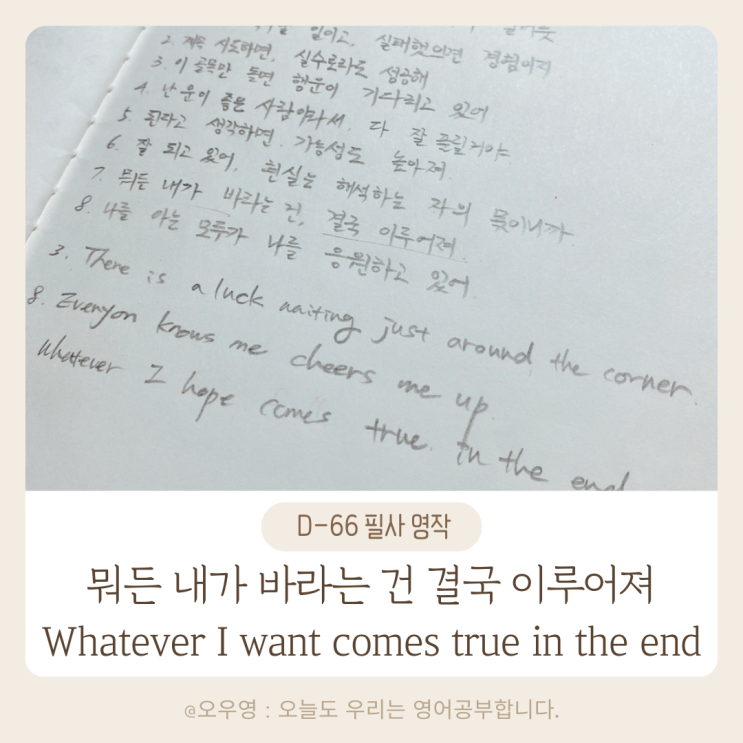 일이고, 실패했으면 경험이지
2. 계속 시도하면, 실수로라도 성공해
3. 이 골목만 돌면 행운이 기다리고 있어
4. 난 운이 좋은 사람이라서, 다 잘 풀릴거야
5. 된다고 생각하면, 가능성도 높아져.
6. 잘 되고 있어, 현실는 해석하는 자의 몫이니까.
7. 뭐든 내가 바라는 건, 결국 이루어져.
8. 나를 아는 모두가 나를 응원하고 있어.
3. There is a luck waiting just around the corner.
8. Everyon knows me cheers me up.
Whatever I hope comes true. in the end
D-66 필사 영작
뭐든 내가 바라는 건 결국 이루어져
Whatever I want comes true in the end
@오우영 : 오늘도 우리는 영어공부합니다.